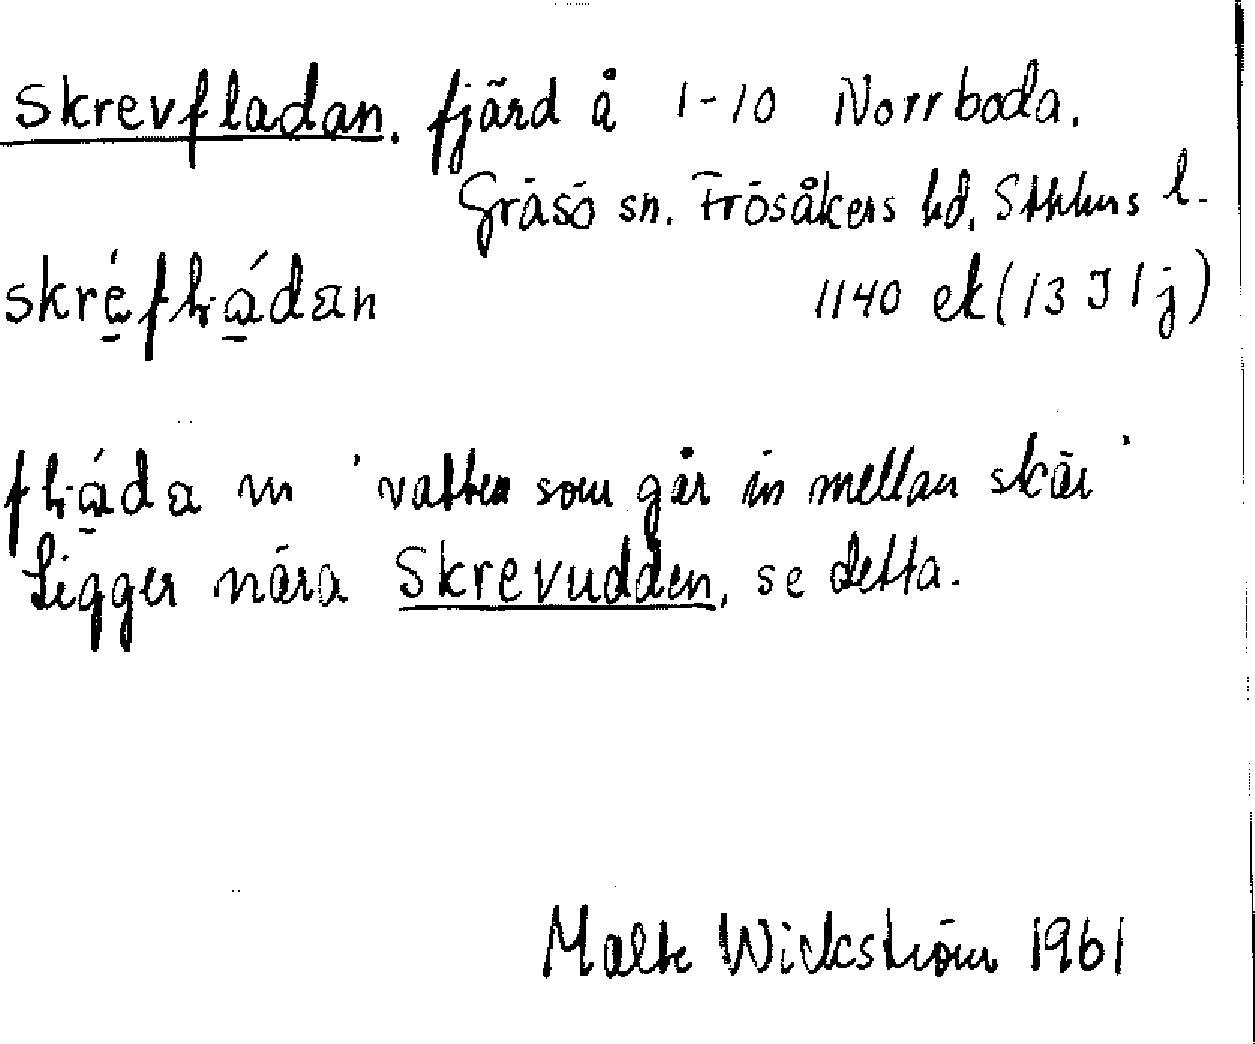 Skrevfladan. fjärd å 1-10 Norrboda.
Gräsö sn. Frösåkers hd. Sthlms l.
1140 ek (13 I 1 j)
m 'vatten som går in mellan skär'
Ligger nära Skrevudden, se detta.
Malte Wickström 1961